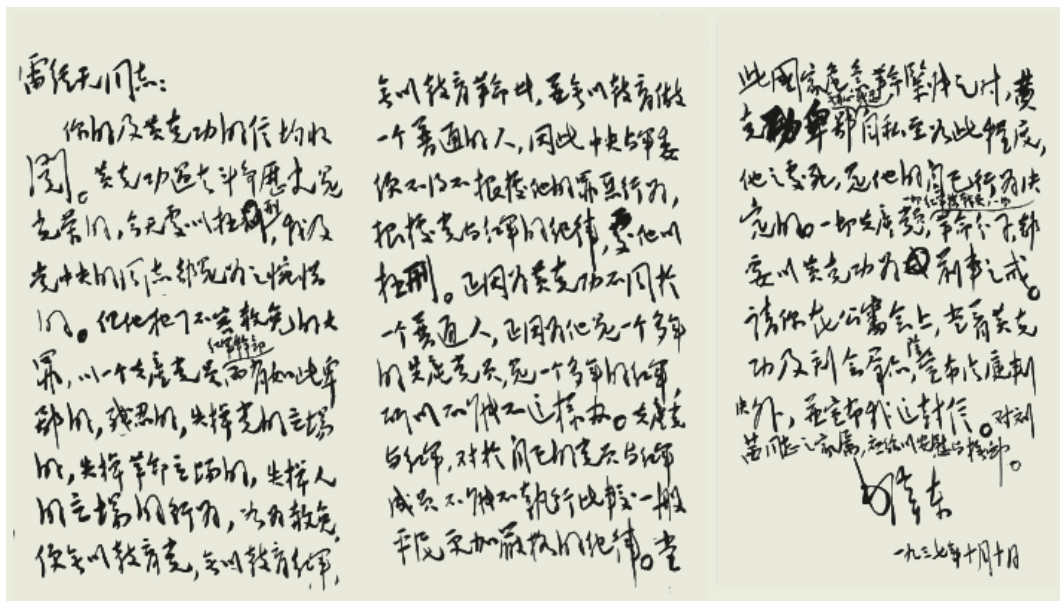 雷经天同志：
你的及黄克功的信均收
阅。黄克功过去斗争历史是
光荣的，今天處以极刑，我及
党中央的同志都是为之惋惜
的。但他犯了不容赦免的大
罪，以一个共產党员红军幹部而有如此卑
鄙的，残忍的，失掉党的立場
的，失掉革命立場的，失掉人
的立場的行为，如为赦免，
便无以教育党，无以教育红军，
无以教育革命者，並无以教育做
一个普通的人，因此中央与军委
便不得不根據他的罪恶行为，
根據党与红军的纪律，處他以
极刑。正因为黄克功不同於
一个普通人，正因为他是一个多年
的共產党员，是一个多年的红军，
所以不能不这样办。共產党
与红军，对於自己的党员与红军
成员不能不執行比較一般
平民更加嚴格的纪律。当
此國家危急革命緊张之时，黄
克功卑鄙无耻残忍自私至如此程度，
他之處死，是他的自己行为决
定的。一切共產党员，一切红军指战员，一切革命分子，都
要以黄克功为前車之戒。
請你在公審会上，当着黄克
功及到会群众，除宣布法庭判
决外，並宣布我这封信。对刘
茜同志之家属，应给以安慰与抚卹。
毛泽东
一九三七年十月十日